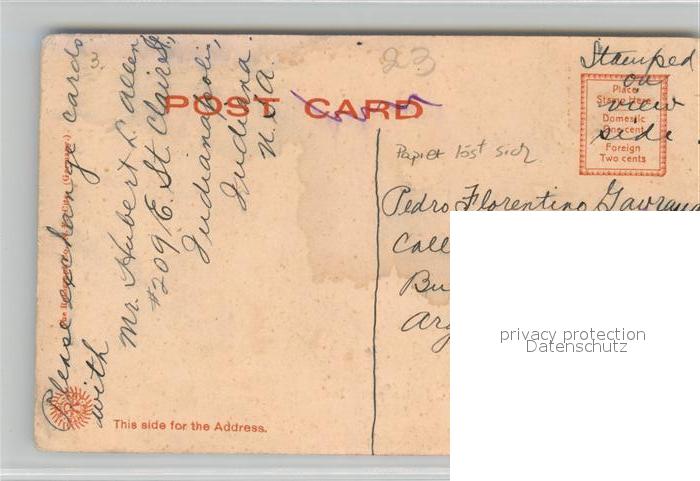 23
3
POST CARD
Stamped
on
view
side.
Place
Stamp Here
Domestic
One cent
Foreign
Two cents
Please exchange cards
with
Mr. Hubert L. Allen,
#209 E. St. Clair St,
Indianapolis,
Indiana.
U.S.A.
Papier löst sich
Pedro Florentino
Call
Bu
Arg
(Germany)
This side for the Address.
privacy protection
Datenschutz